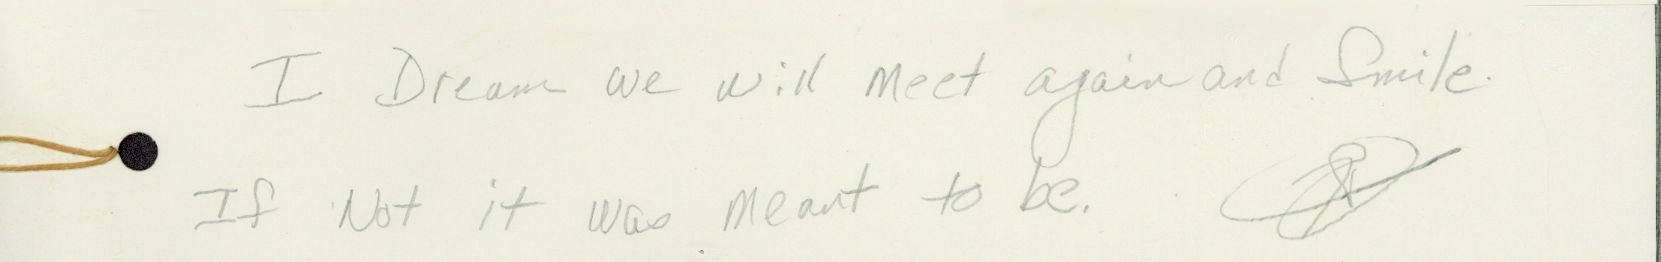 I Dream we will Meet again and Smile.
If Not it was Meant to be.